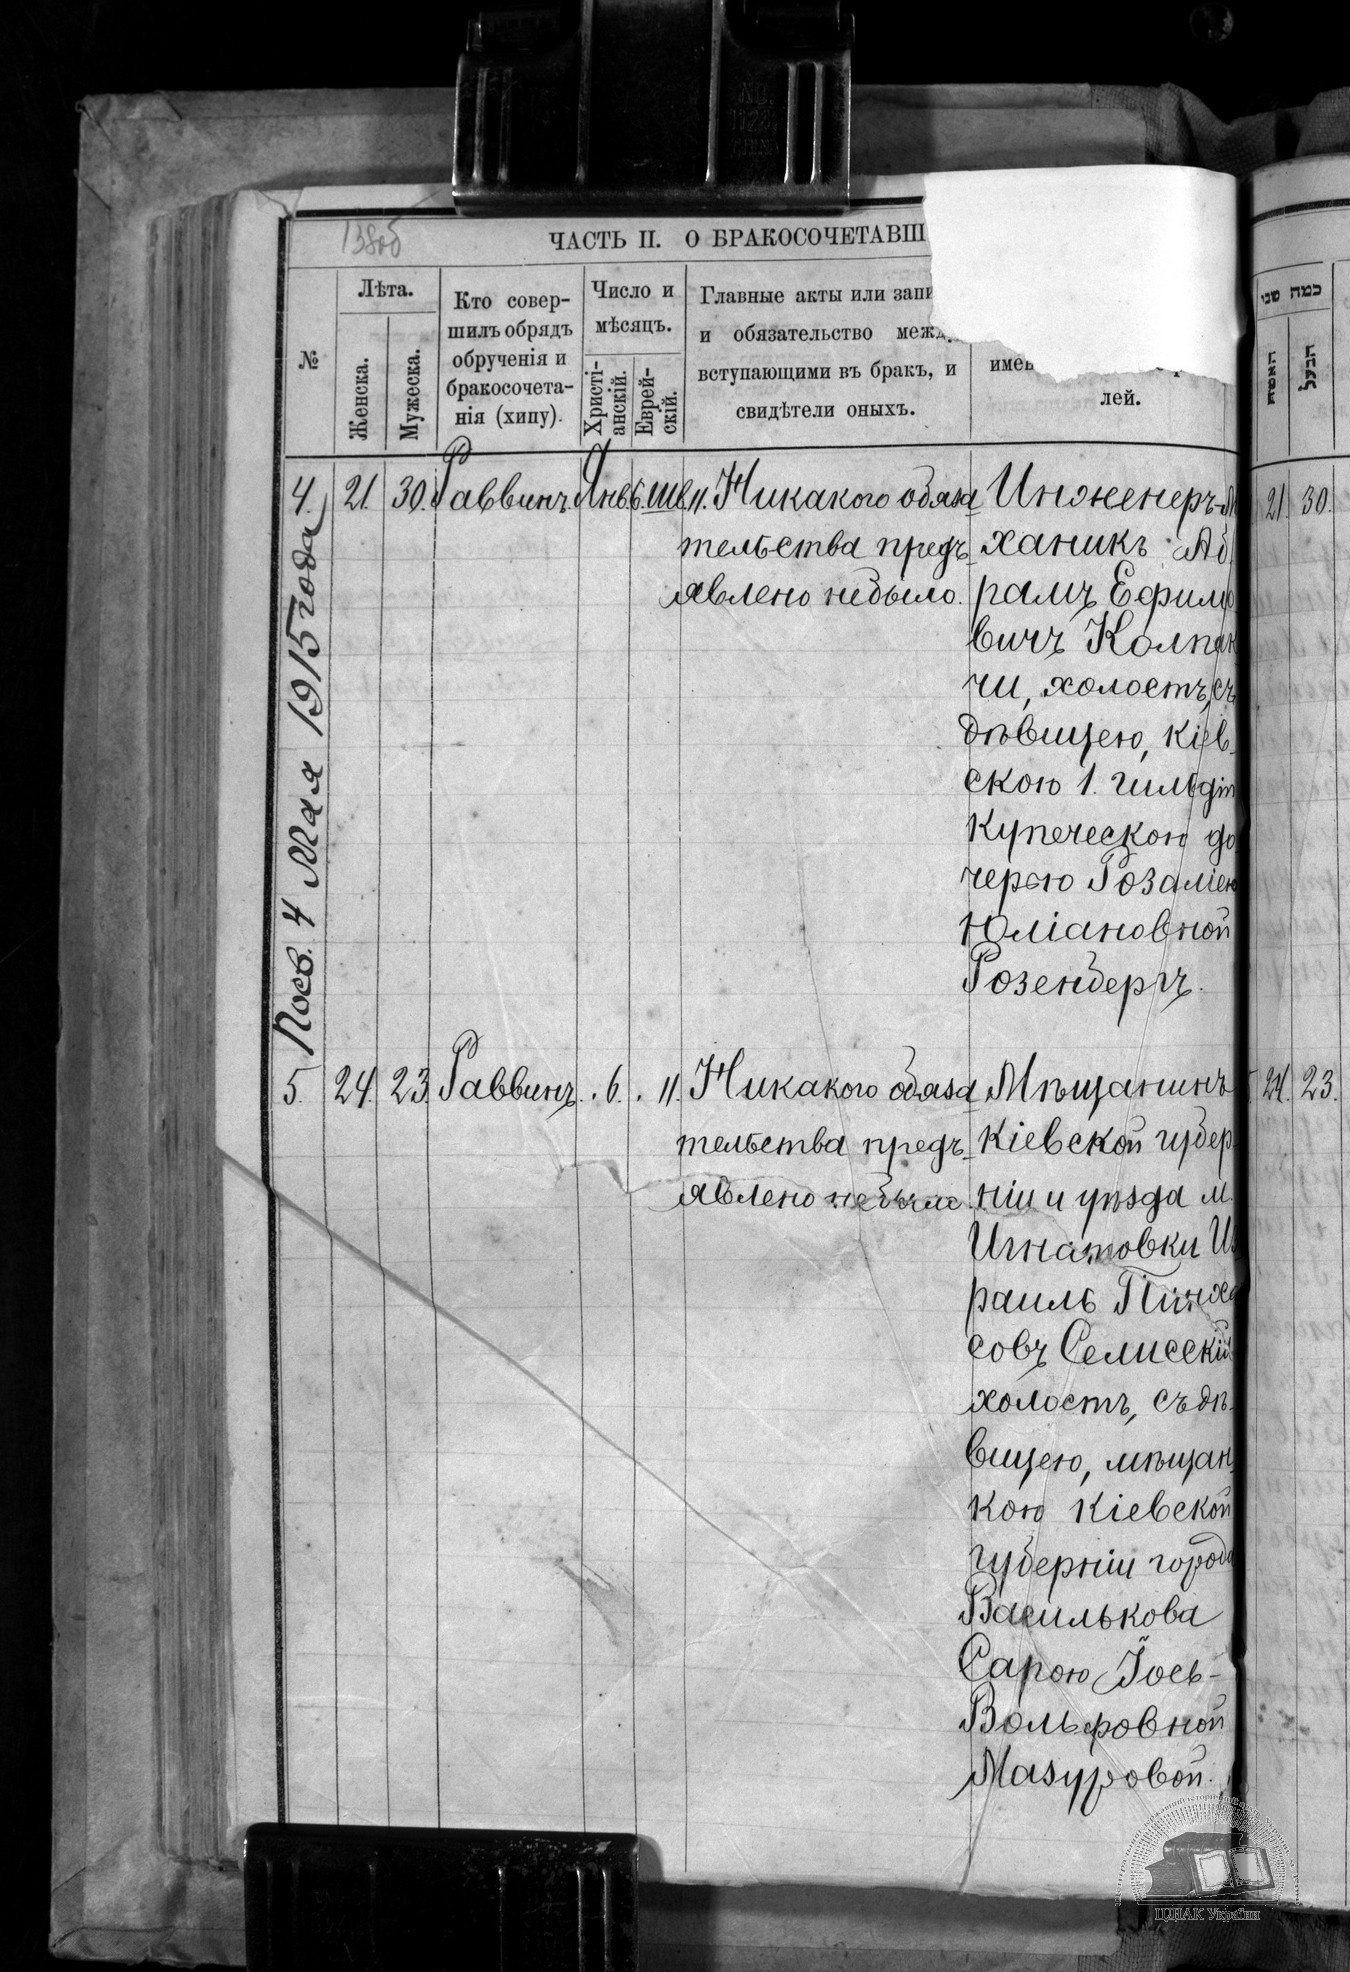 138об
ЧАСТЬ II. О БРАКОСОЧЕТАВШ
№
Лѣта.
Женска.
Мужеска.
Кто совер-
шилъ обрядъ
обрученія и
бракосочета-
нія (хипу).
Число и
мѣсяцъ.
Христі-
анскій.
Еврей-
скій.
Главные акты или запи
и обязательство межд
вступающими въ бракъ, и
свидѣтели оныхъ.
имен
лей.
4. 21. 30. Раввинъ. Янв. 6. Шв. 11. Никакого обяза
тельства предъ
явлено небыло.
Инженеръ-М
ханикъ Аб
рамъ Ефимо
вичъ Колпак
чи, холостъ, съ
дѣвицею, Кіев-
скою 1. гильдіи
купеческою до
черью Розаліею
Юліановной
Розенбергъ.
Посв. 4 Мая 1915 года
5. 24. 23. Раввинъ. 6. 11. Никакого обяза
тельства предъ
явлено небыло.
Мѣщанинъ
Кіевской губер-
ніи и уѣзда м.
Игнатовки Из
раиль Пинха
совъ Селисскій
холостъ, съ дѣ-
вицею, мѣщан-
кою Кіевской
губерніи города
Василькова
Сарою Іось-
Вольфовной
Мазуровой.
כמה שני
האשה
הבעל
21. 30.
24. 23.
ЦДІАК України